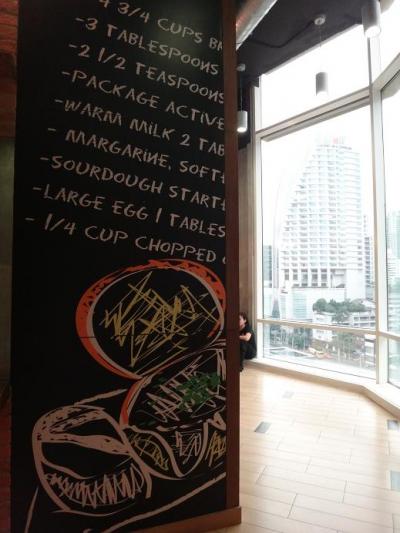 4 3/4 CUPS
-3 TABLESPOONS
-2 1/2 TEASPOONS
-PACKAGE ACTIVE
-WARM MILK 2 TAB
- MARGARINE, SOFT
-SOURDOUGH START
-LARGE EGG 1 TABLES
- 1/4 CUP CHOPPED